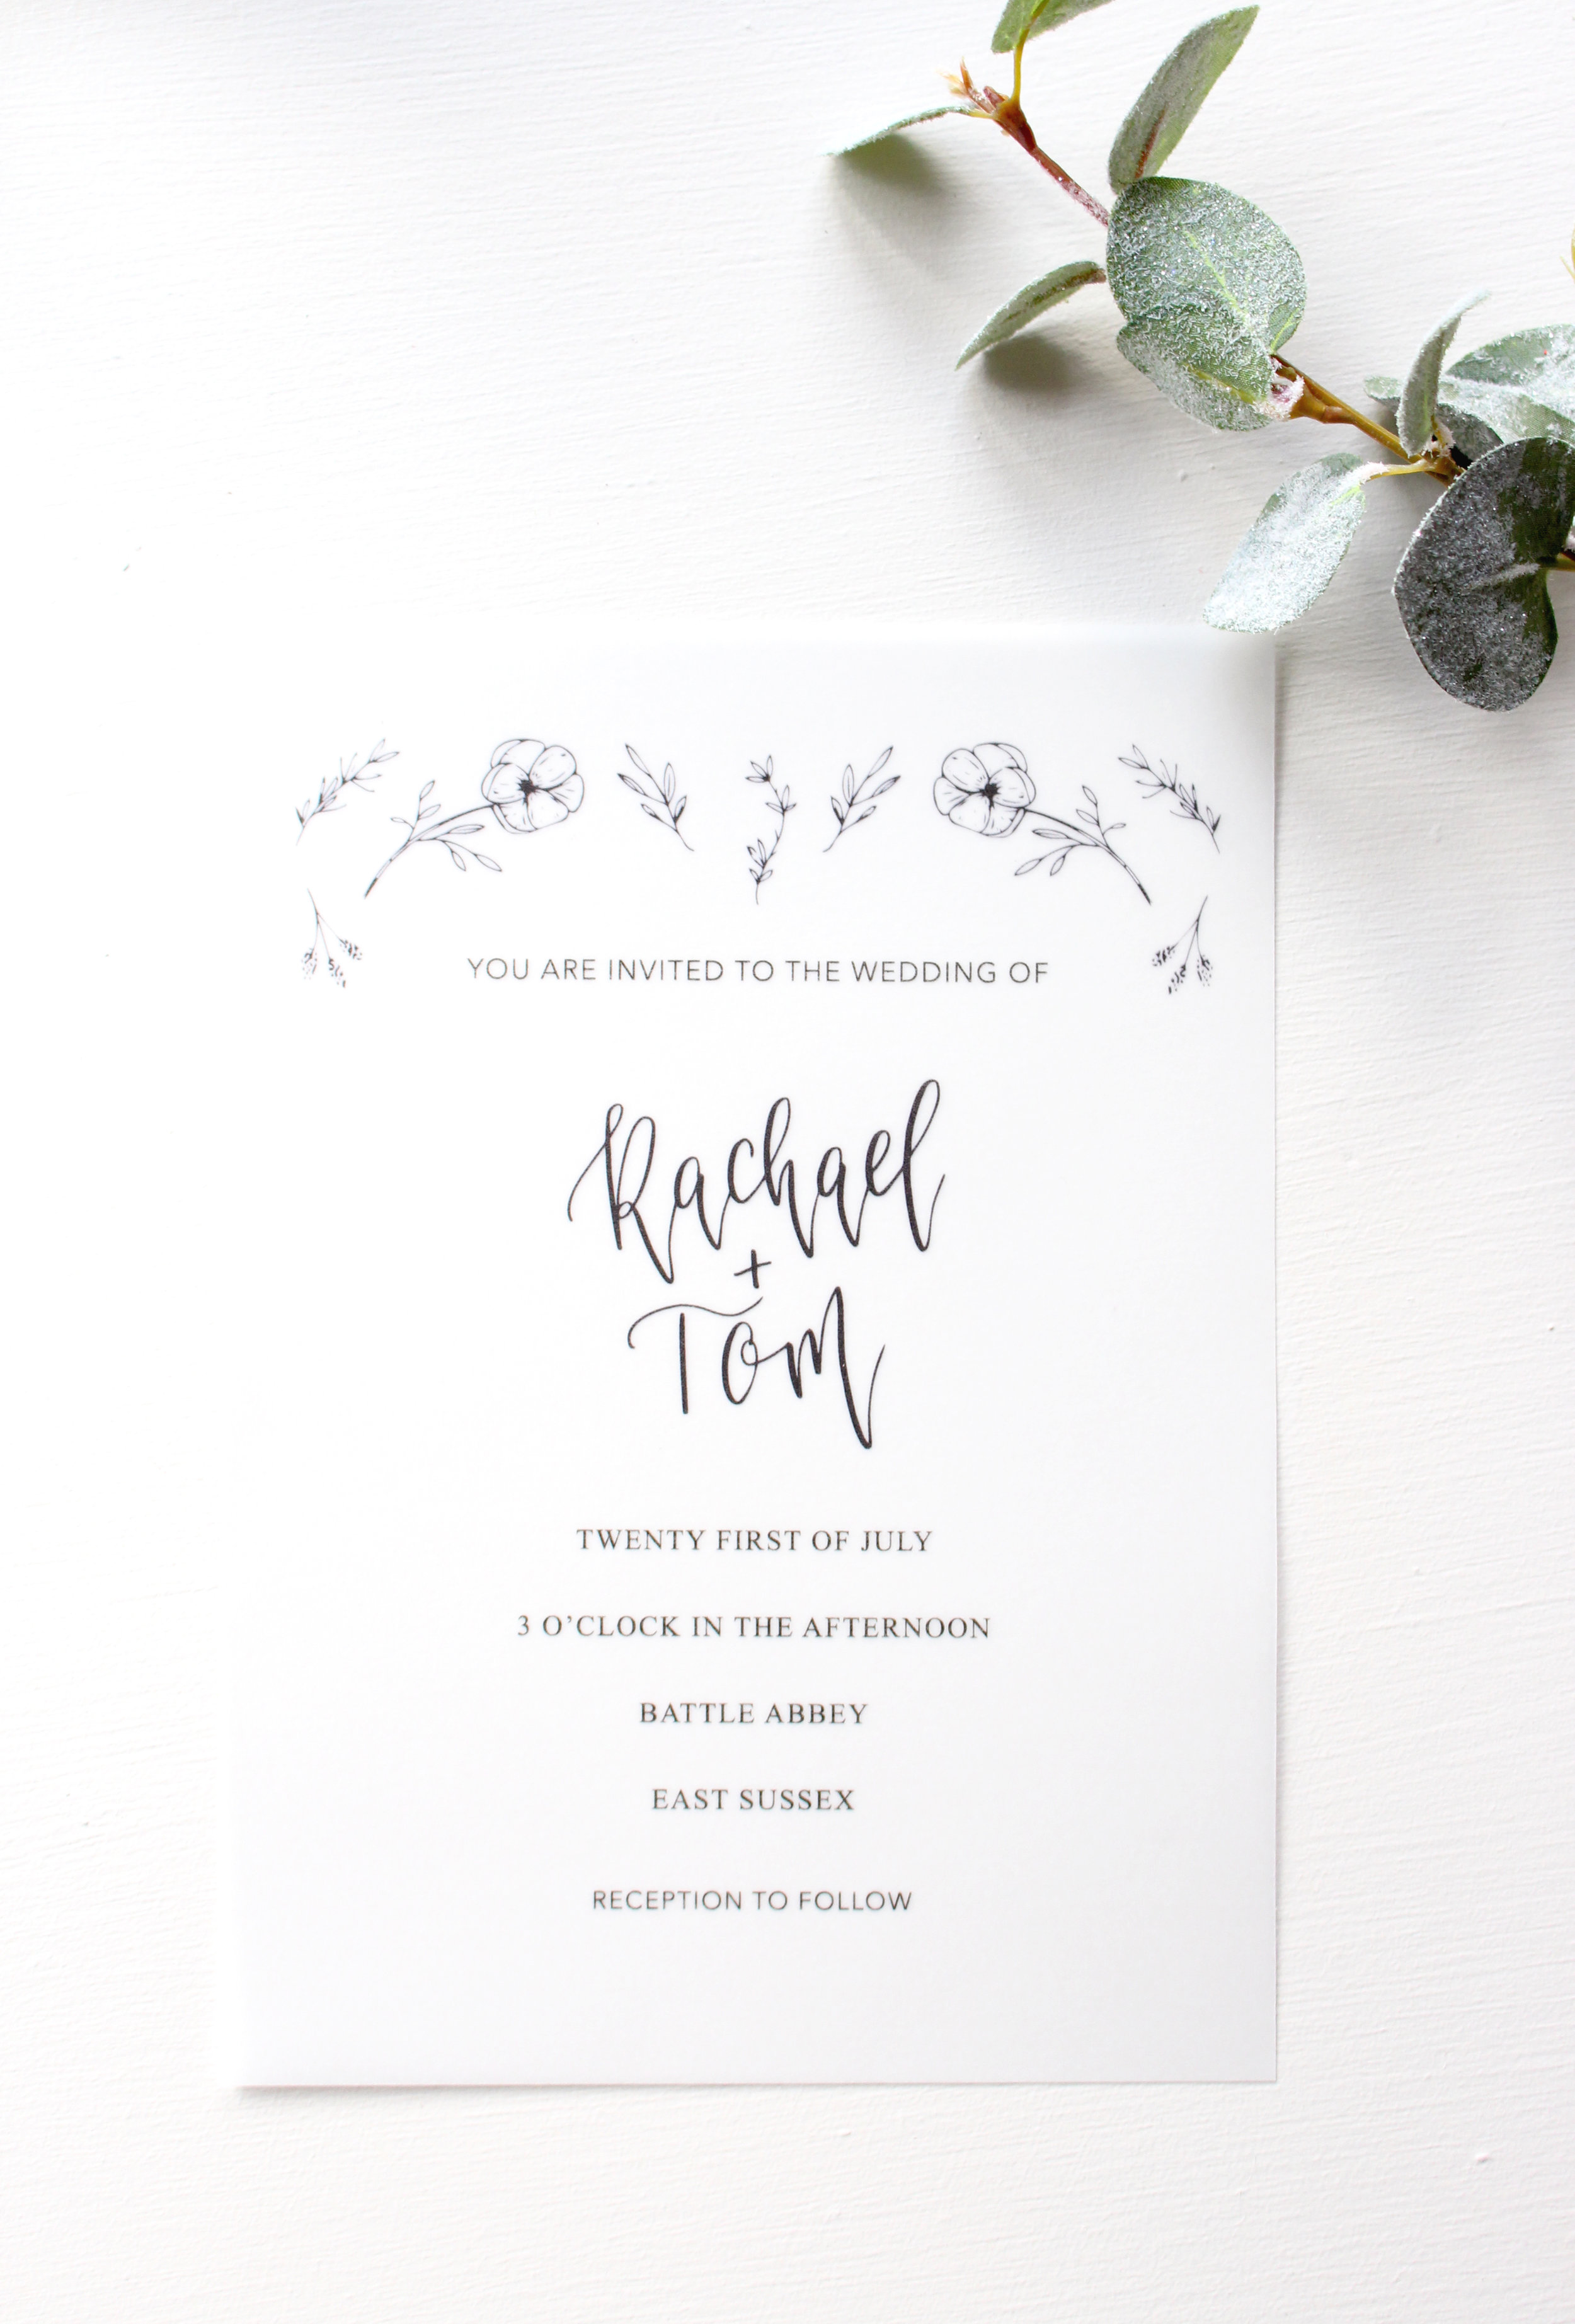 YOU ARE INVITED TO THE WEDDING OF
Rachael
+
Tom
TWENTY FIRST OF JULY
3 O’CLOCK IN THE AFTERNOON
BATTLE ABBEY
EAST SUSSEX
RECEPTION TO FOLLOW